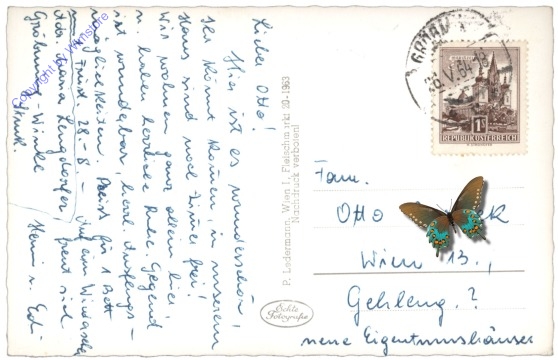 Lieber Otto!
Hier ist es wunderschön!
Ihr könnt kommen, in unserem
Haus sind noch Zimmer frei!
Wir wohnen ganz allein hier,
u. haben herrliche Ruhe. Gegend
ist wunderbar, herrl. Ausflugs-
möglichkeiten. Preis für 1 Bett
Früst. 28.- S - Auf ein Wiederseh
Maria Lengdorfer, freut sich
Grünau - Winkl
u.
Copyright
P. Ledermann, Wien I., Fleischmarkt 20-1963
Nachdruck verboten!
Echte
Fotografie
GRÜNAU
1S
REPUBLIK ÖSTERREICH
Fam.
Otto
Wien 13.,
Gehleng. ?
neue Eigentumshäuser